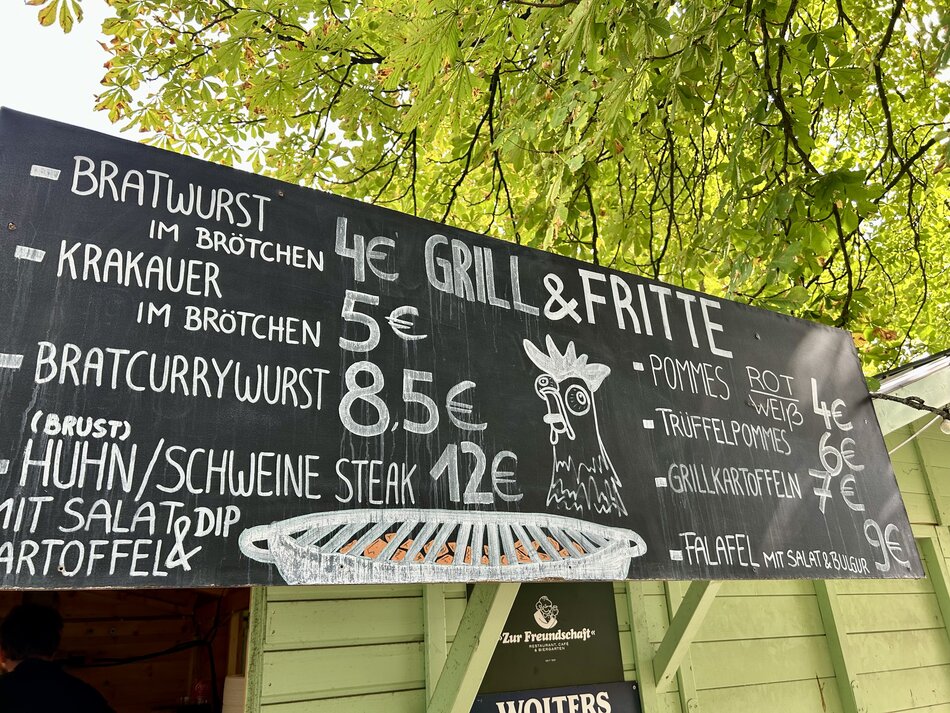 - BRATWURST
IM BRÖTCHEN 4€
- KRAKAUER
IM BRÖTCHEN 5€
- BRATCURRYWURST 8,5€
(BRUST)
- HUHN/SCHWEINE STEAK 12€
MIT SALAT & DIP
KARTOFFEL &
GRILL & FRITTE
- POMMES ROT
WEIß 4€
- TRÜFFELPOMMES 6€
- GRILLKARTOFFELN 7€
- FALAFEL MIT SALAT & BULGUR 9€
"Zur Freundschaft"
RESTAURANT, CAFÉ
& BIERGARTEN
WOLTERS